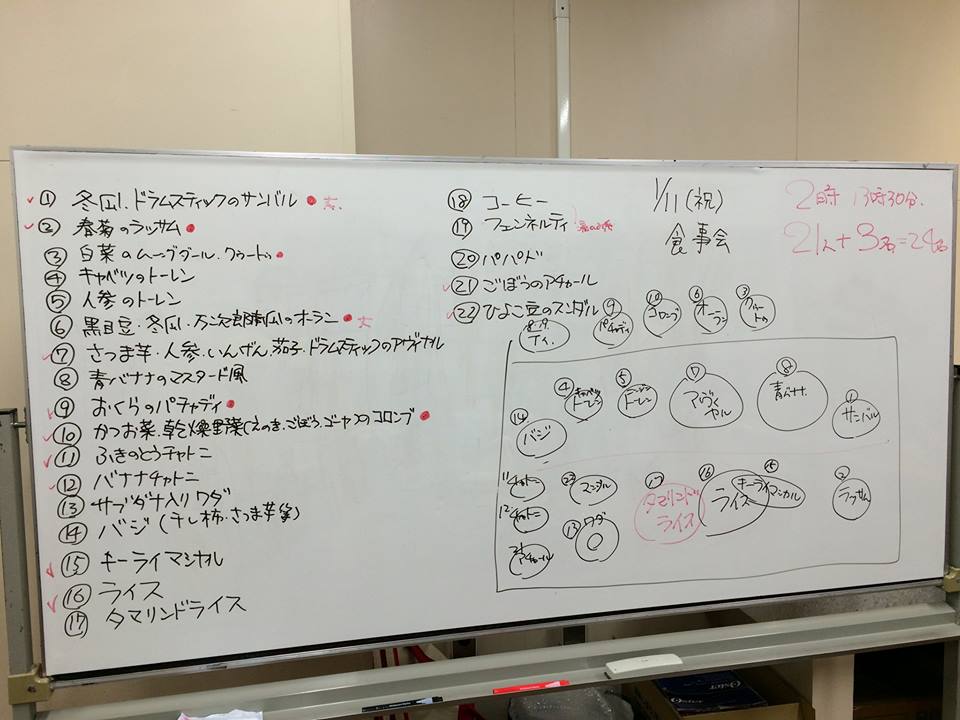 ① 冬瓜、ドラムスティックのサンバル
② 春菊のラッサム
③ 白菜のムーングダール、クゥートゥ
④ キャベツのトーレン
⑤ 人参のトーレン
⑥ 黒目豆・冬瓜・万次郎南瓜のオーラン
⑦ さつま芋・人参・いんげん、茄子・ドラムスティックのアヴィヤル
⑧ 青バナナのマスタード風
⑨ おくらのパチャディ
⑩ かつお菜、乾燥野菜(えのき・ごぼう、ゴーヤ)のコロンブ
⑪ ふきのとうチャトニ
⑫ バナナチャトニ
⑬ サブダナ入りワダ
⑭ バジ(干し柿・さつま芋等)
⑮ キーライマシヤル
⑯ ライス
⑰ タマリンドライス
⑱ コーヒー
⑲ フェンネルティ
⑳ パパド
㉑ ごぼうのアチャール
㉒ ひよこ豆のスンダル
1/11(祝)
食事会
2時 13時30分.
21人+3名=24名
18.19.
ティ.
⑨
パチャディ
⑩
コロンブ
⑥
オーラン
③
クゥートゥ
④
キャベツ
トーレン
⑤
ニンジン
トーレン
⑦
アヴィ
ヤル
⑧
青バナナ
①
サンバル
14
バジ
11
チャトニ
12
チャトニ
21
アチャール
22
スンダル
⑬
ワダ
⑰
タマリンド
ライス
⑯
ライス
⑮
キーライマシヤル
②
ラッサム